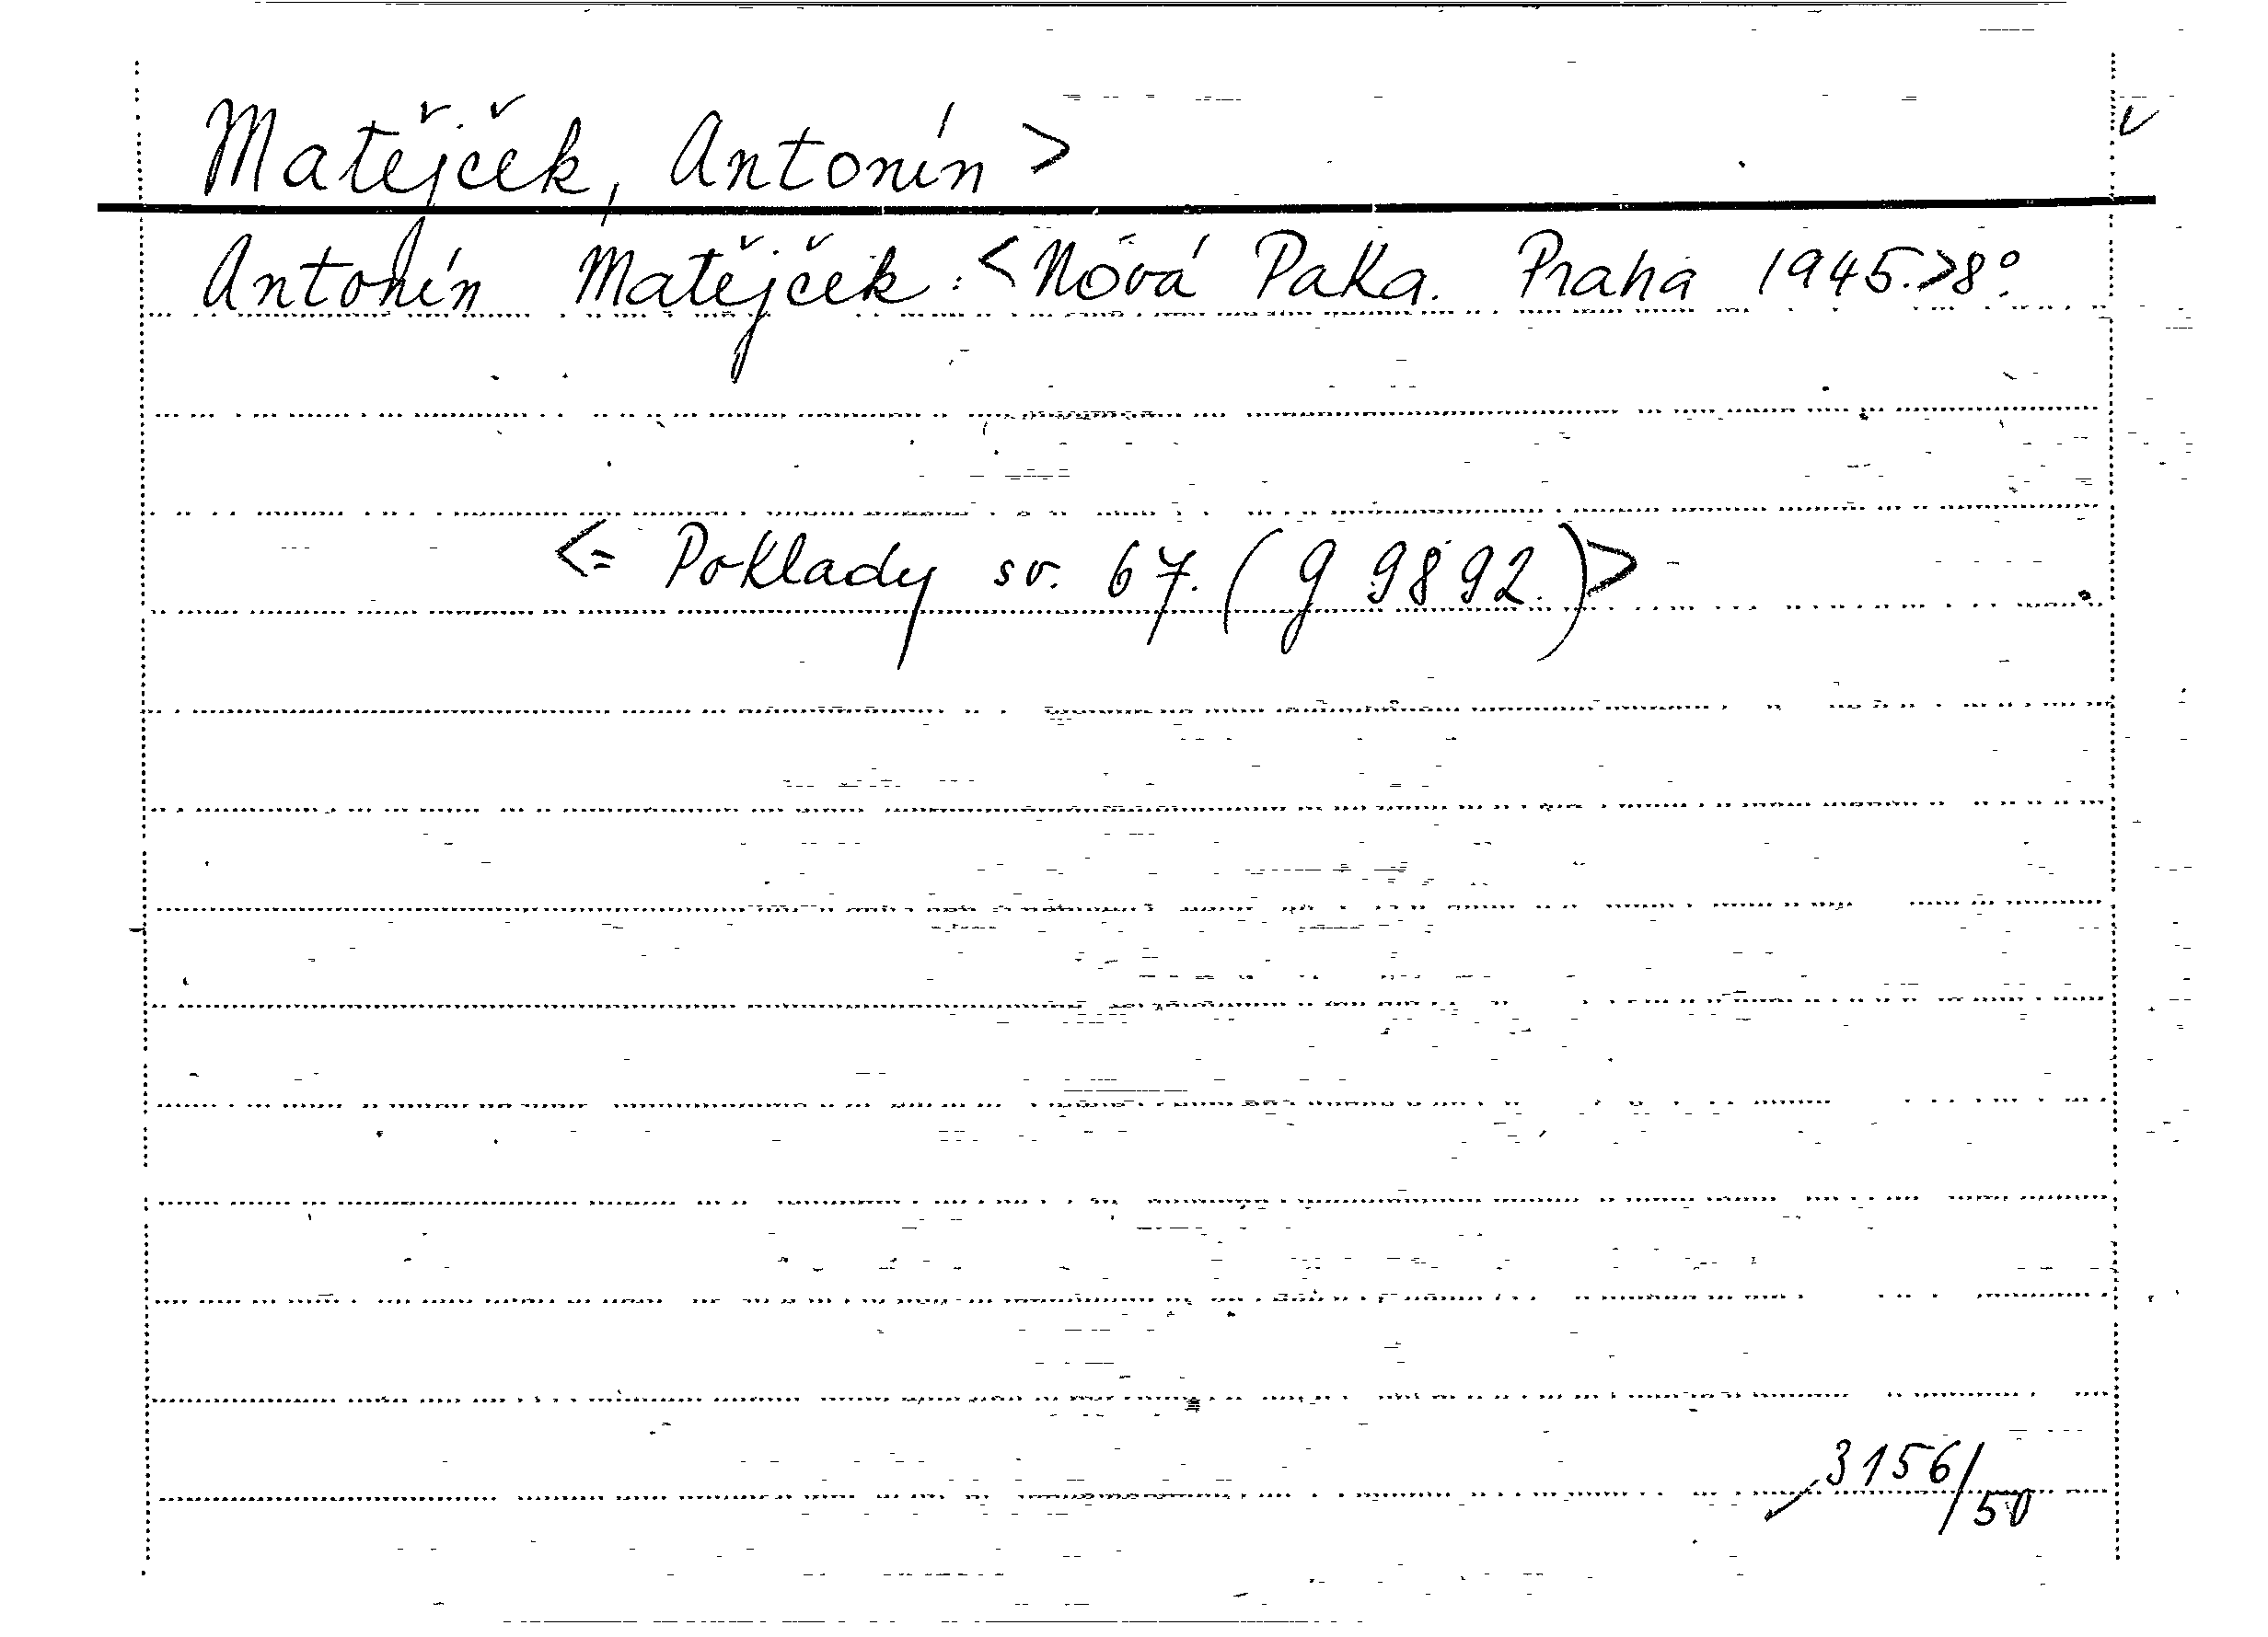 Matějček, Antonín >
Antonín Matějček: <Nová Paka. Praha 1945.>8°.
<= Poklady sv. 67. (g 9892.)>
3156/50